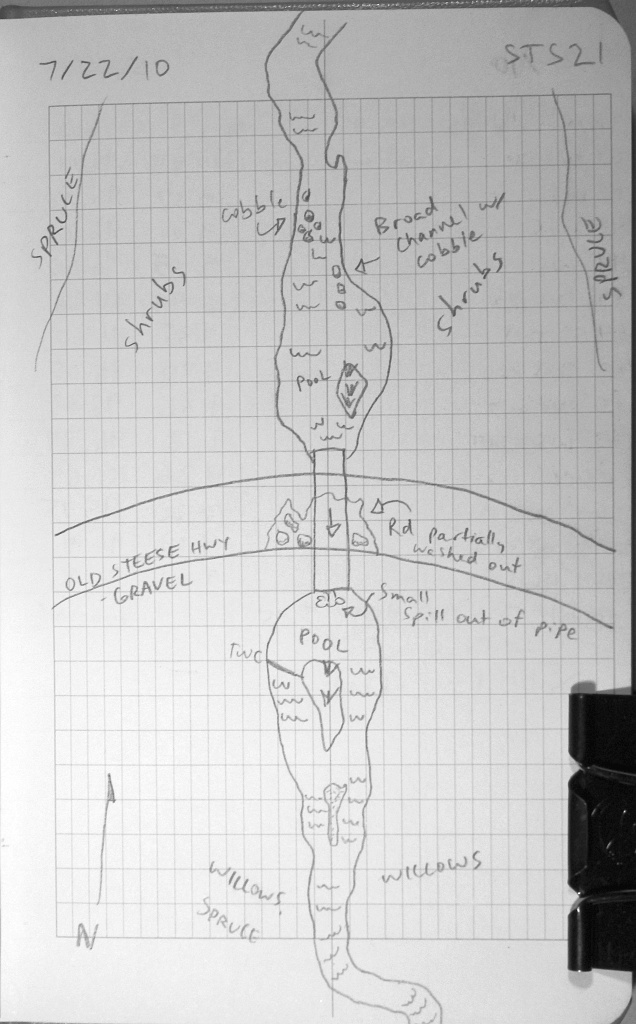 7/22/10
STS21
SPRUCE
cobble
Broad
channel w/
cobble
SPRUCE
shrubs
shrubs
POOL
Rd partially
washed out
OLD STEESE HWY
GRAVEL
Small
Spill out of pipe
POOL
TWC
WILLOWS
WILLOWS,
SPRUCE
N